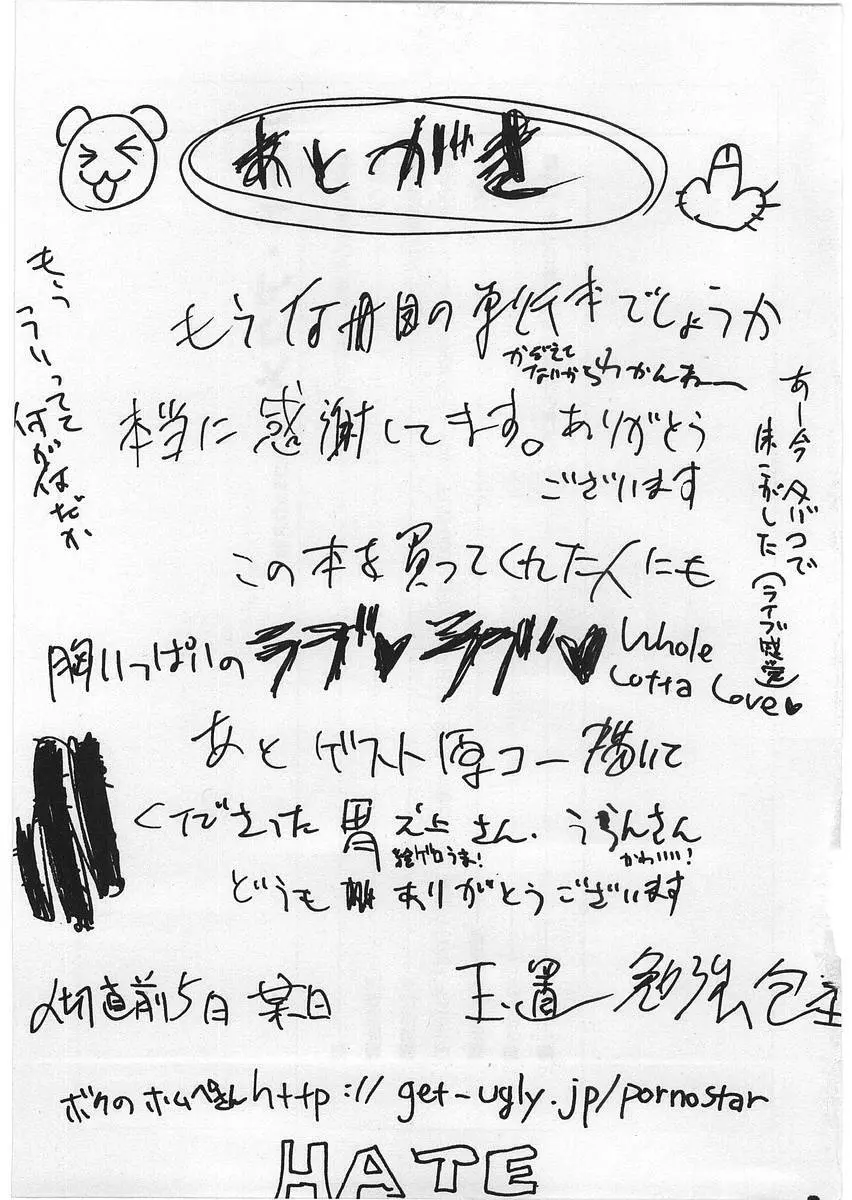 あとがき
もう何冊目の単行本でしょうか
かぞえて
ないからわかんねー
本当に感謝してます。ありがとう
ございます
この本を買ってくれた人にも
胸いっぱいのラブ♥ラブ♥Whole
Lotta Love♥
あとゲスト原コー描いて
くださった胃之上さん. うらんさん
絵ゲロうま! かわいい!
どうもありがとうございます
〆切直前5日某日 玉置勉強
ボクのホムペさんhttp://get-ugly.jp/pornostar
HATE
もう
こういってて
何が何だか
あー今タバコで
床こがした
(ライブ感覚)